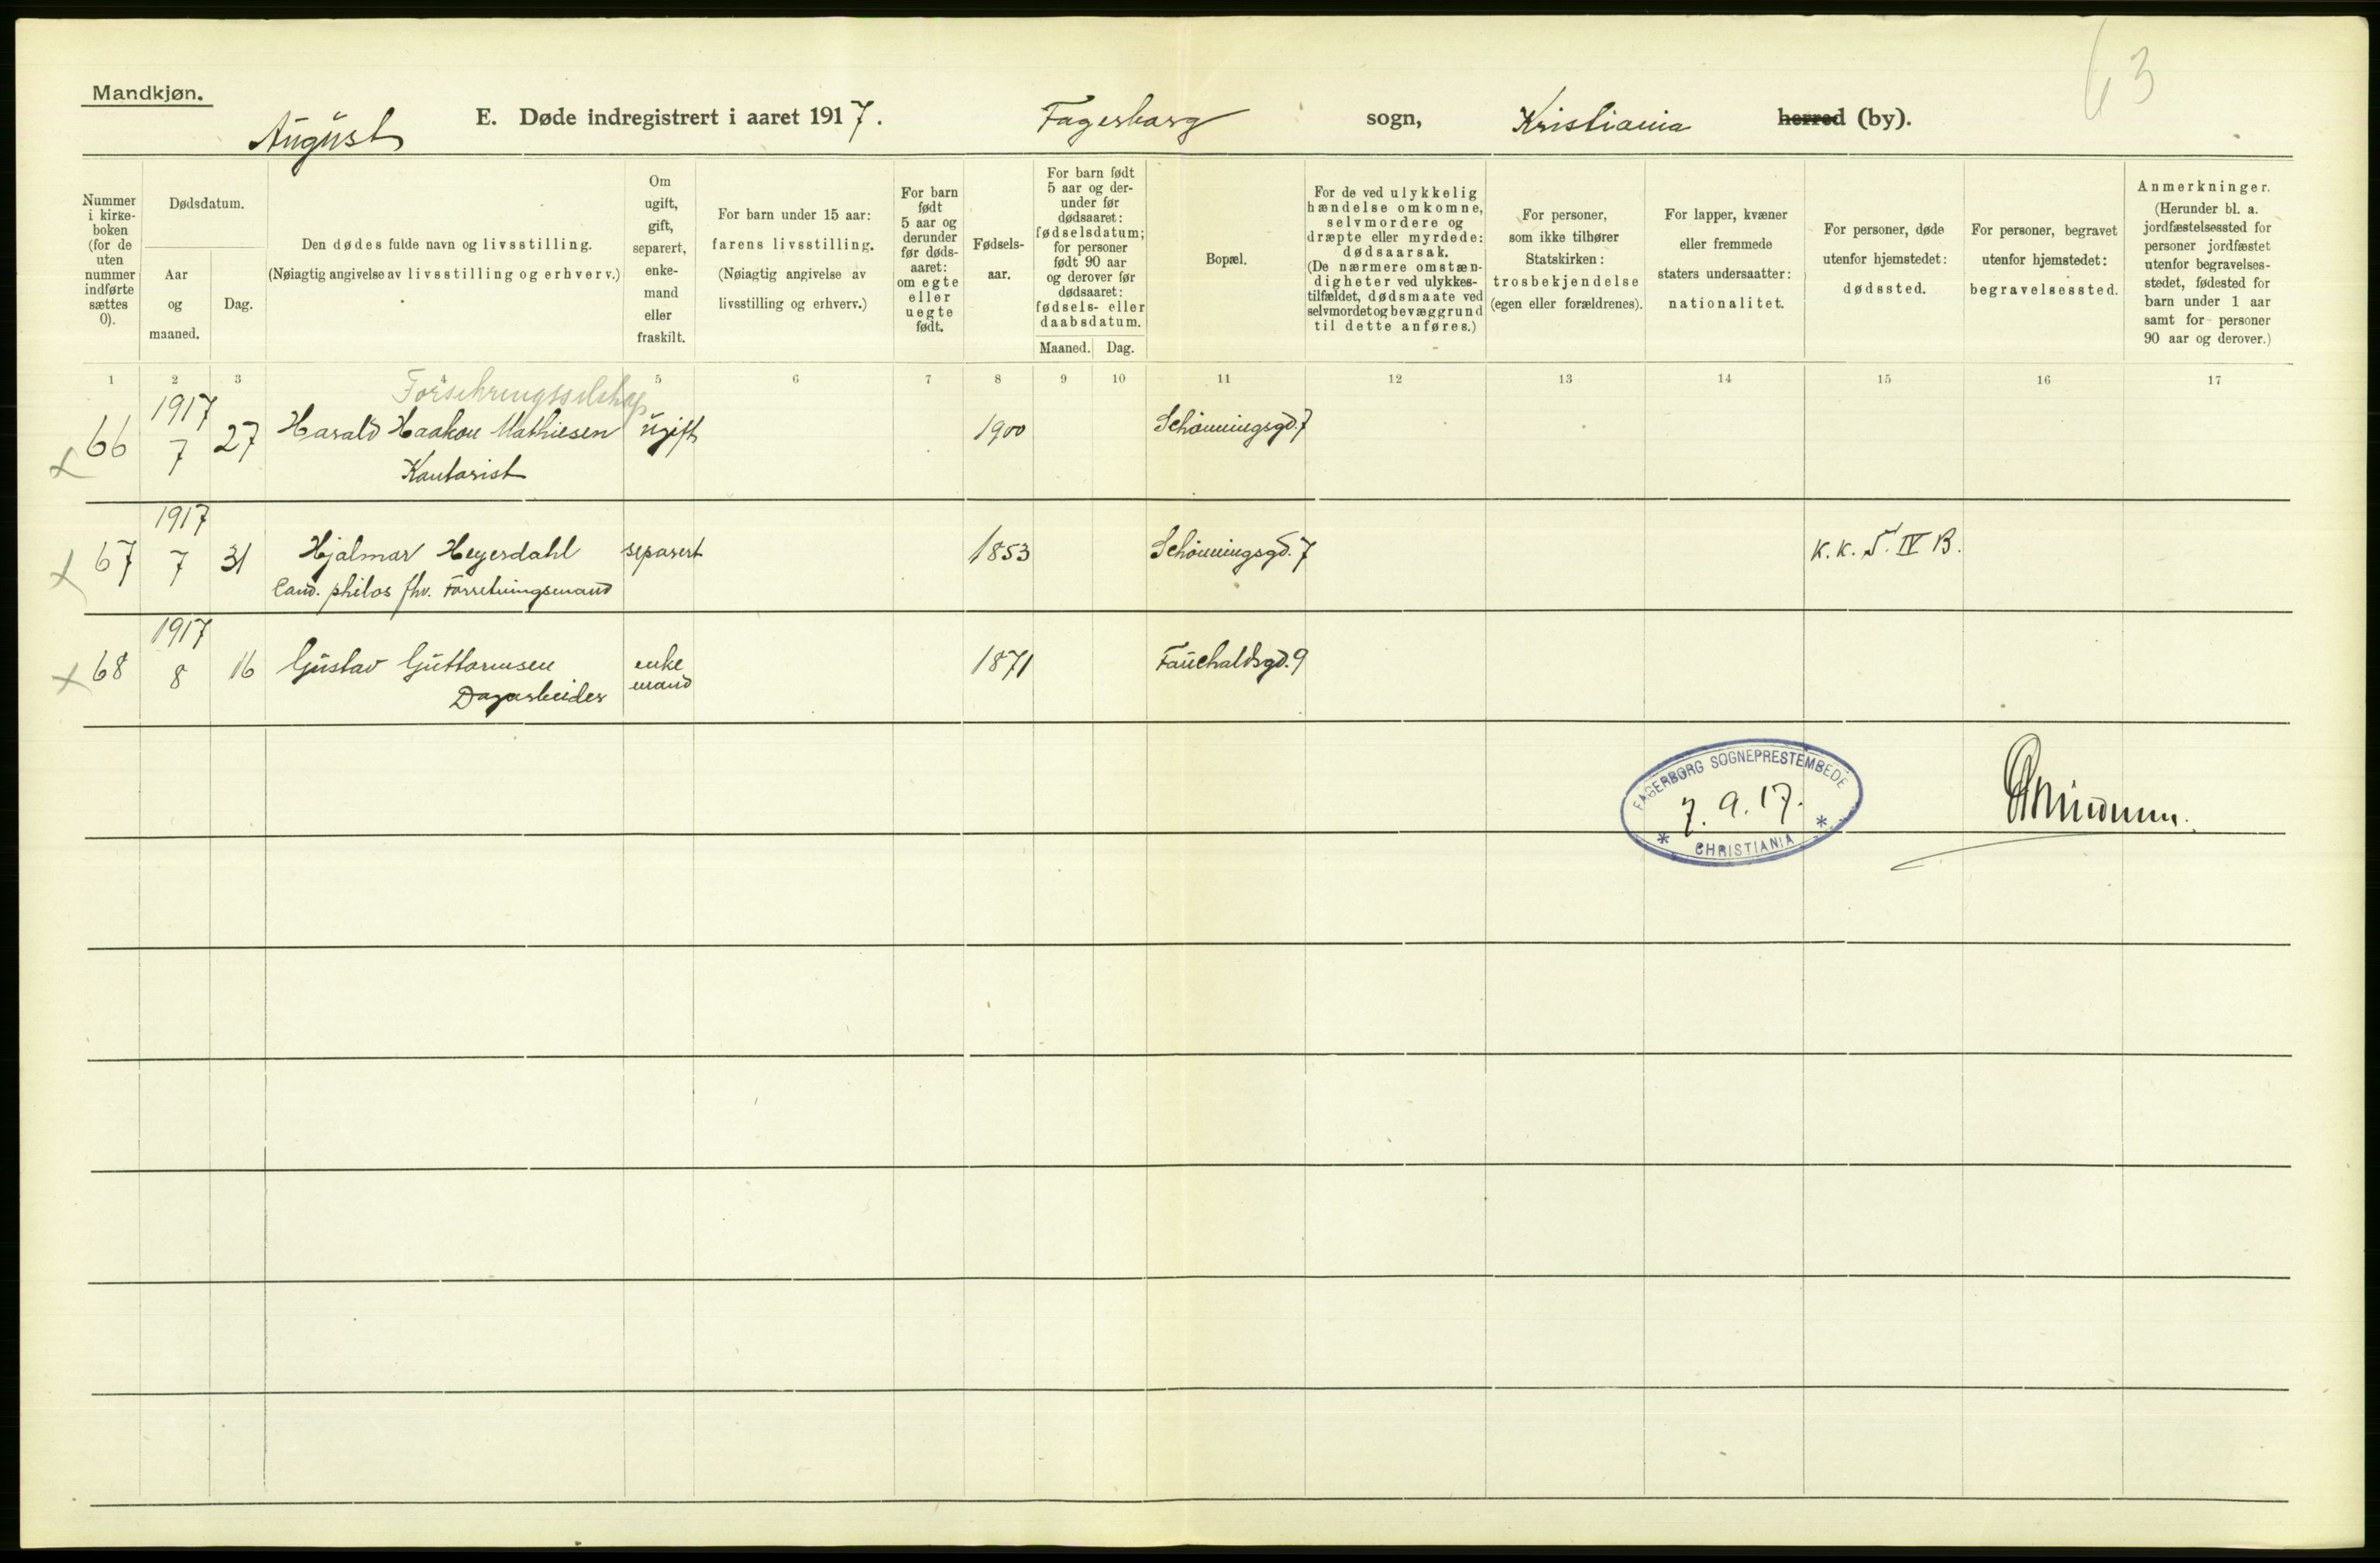 63
Mandkjøn.
August E. Døde indregistrert i aaret 1917. Fagerborg sogn, Kristiania herred (by).
Nummer i kirke-boken (for de uten nummer indførte sættes 0).
Dødsdatum.
Aar og maaned.
Dag.
Den dødes fulde navn og livsstilling.
(Nøiagtig angivelse av livsstilling og erhverv.)
Om ugift, gift, separert, enke-mand eller fraskilt.
For barn under 15 aar: farens livsstilling.
(Nøiagtig angivelse av livsstilling og erhverv.)
For barn født 5 aar og derunder før døds-aaret: om egte eller uegte født.
Fødsels-aar.
For barn født 5 aar og der-under før dødsaaret: fødselsdatum; for personer født 90 aar og derover før dødsaaret: fødsels- eller daabsdatum.
Maaned. Dag.
Bopæl.
For de ved ulykkelig hændelse omkomne, selvmordere og dræpte eller myrdede: dødsaarsak.
(De nærmere omstæn-digheter ved ulykkes-tilfældet, dødsmaate ved selvmordet og bevæggrund til dette anføres.)
For personer, som ikke tilhører Statskirken: trosbekjendelse (egen eller forældrenes).
For lapper, kvæner eller fremmede staters undersaatter: nationalitet.
For personer, døde utenfor hjemstedet: dødssted.
For personer, begravet utenfor hjemstedet: begravelsessted.
Anmerkninger.
(Herunder bl. a. jordfæstelsessted for personer jordfæstet utenfor begravelses-stedet, fødested for barn under 1 aar samt for personer 90 aar og derover.)
1 2 3 5 6 7 8 9 10 11 12 13 14 15 16 17
Forsikringsselskap
1917
x 66 7 27 Harald Haakon Mathiesen ugift 1900 Schønningsgd. 7
Kontorist
1917
x 67 7 31 Hjalmar Heyerdahl separert 1853 Schønningsgd. 7 K. K. S. IV B.
Cand. philos fhv. Forretningsmand
1917
x 68 8 16 Gustav Guttormsen enke mand 1871 Fauchaldsgd. 9
Dagarbeider
FAGERBORG SOGNEPRESTEMBEDE
7.9.17.
* CHRISTIANIA *